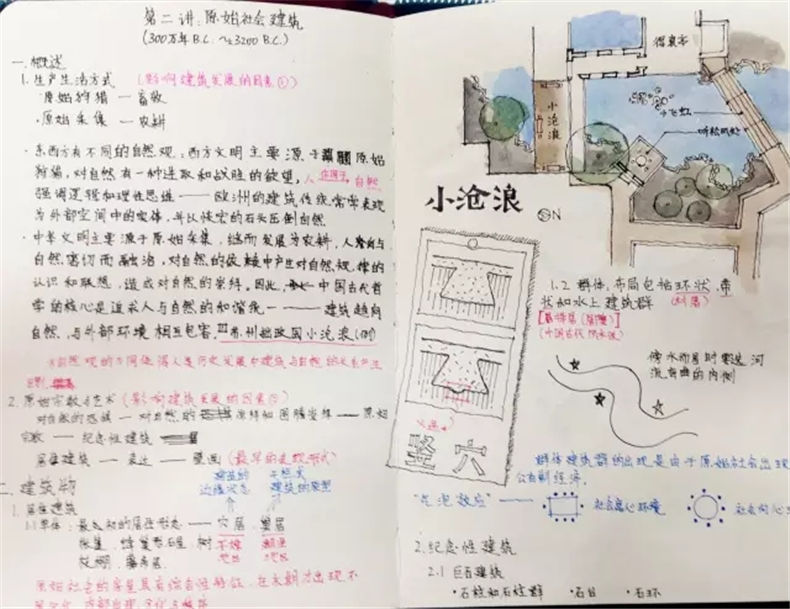 第二讲:原始社会建筑
(300万年B.C. ~3200B.C.)
一.概述
1.生产生活方式 (影响建筑发展的因素①)
·原始狩猎 — 畜牧
·原始采集 — 农耕
·东西方有不同的自然观,西方文明主要源于 原始
狩猎,对自然有一种进取和战胜的欲望,人 自然
强调逻辑和理性思维 —— 欧洲的建筑传统常常表现
为外部空间中的实体,并以恢宏的石头压倒自然
·中华文明主要源于原始采集,继而发展为农耕,人类与
自然密切而融洽,对自然的依赖中产生对自然规律的
认识和联想,造成对自然的崇拜。因此, 中国古代哲
学的核心是追求人与自然的和谐统一 ———— 建筑趋向
自然,与外部环境相互包容,苏州拙政园小沧浪(例)
自然观的不同使得人类历史发展中建筑与自然的关系产生
2.原始宗教与艺术(影响建筑发展的因素②)
对自然的恐惧 — 对自然的 崇拜如图腾崇拜 —— 原始
宗教 — 纪念性建筑
居住建筑 — 表达 — 壁画 (最早的表现形式)
建筑的
边缘状态
建筑的原型
二.建筑物
1.居住建筑
1.1单体:最初的居住形态 —— 穴居、巢居
帐篷、蜂巢形石屋、树
枝棚、
原始社会的房屋具有综合性特征,在长期才出现不
得真亭
小沧浪
小飞虹
听松风处
小沧浪 N
竖穴
1.2 群体:布局包括环状、带
状如水上建筑群 (村落)
(中国古代 )
傍水而居时要选河
流弯曲的内侧
群体建筑群的出现是由于原始社会出现
公有制经济。
“气泡效应” —— 社会离心环境 社会向心
2.纪念性建筑
2.1 巨石建筑
·石柱和石柱群 ·石台 ·石环